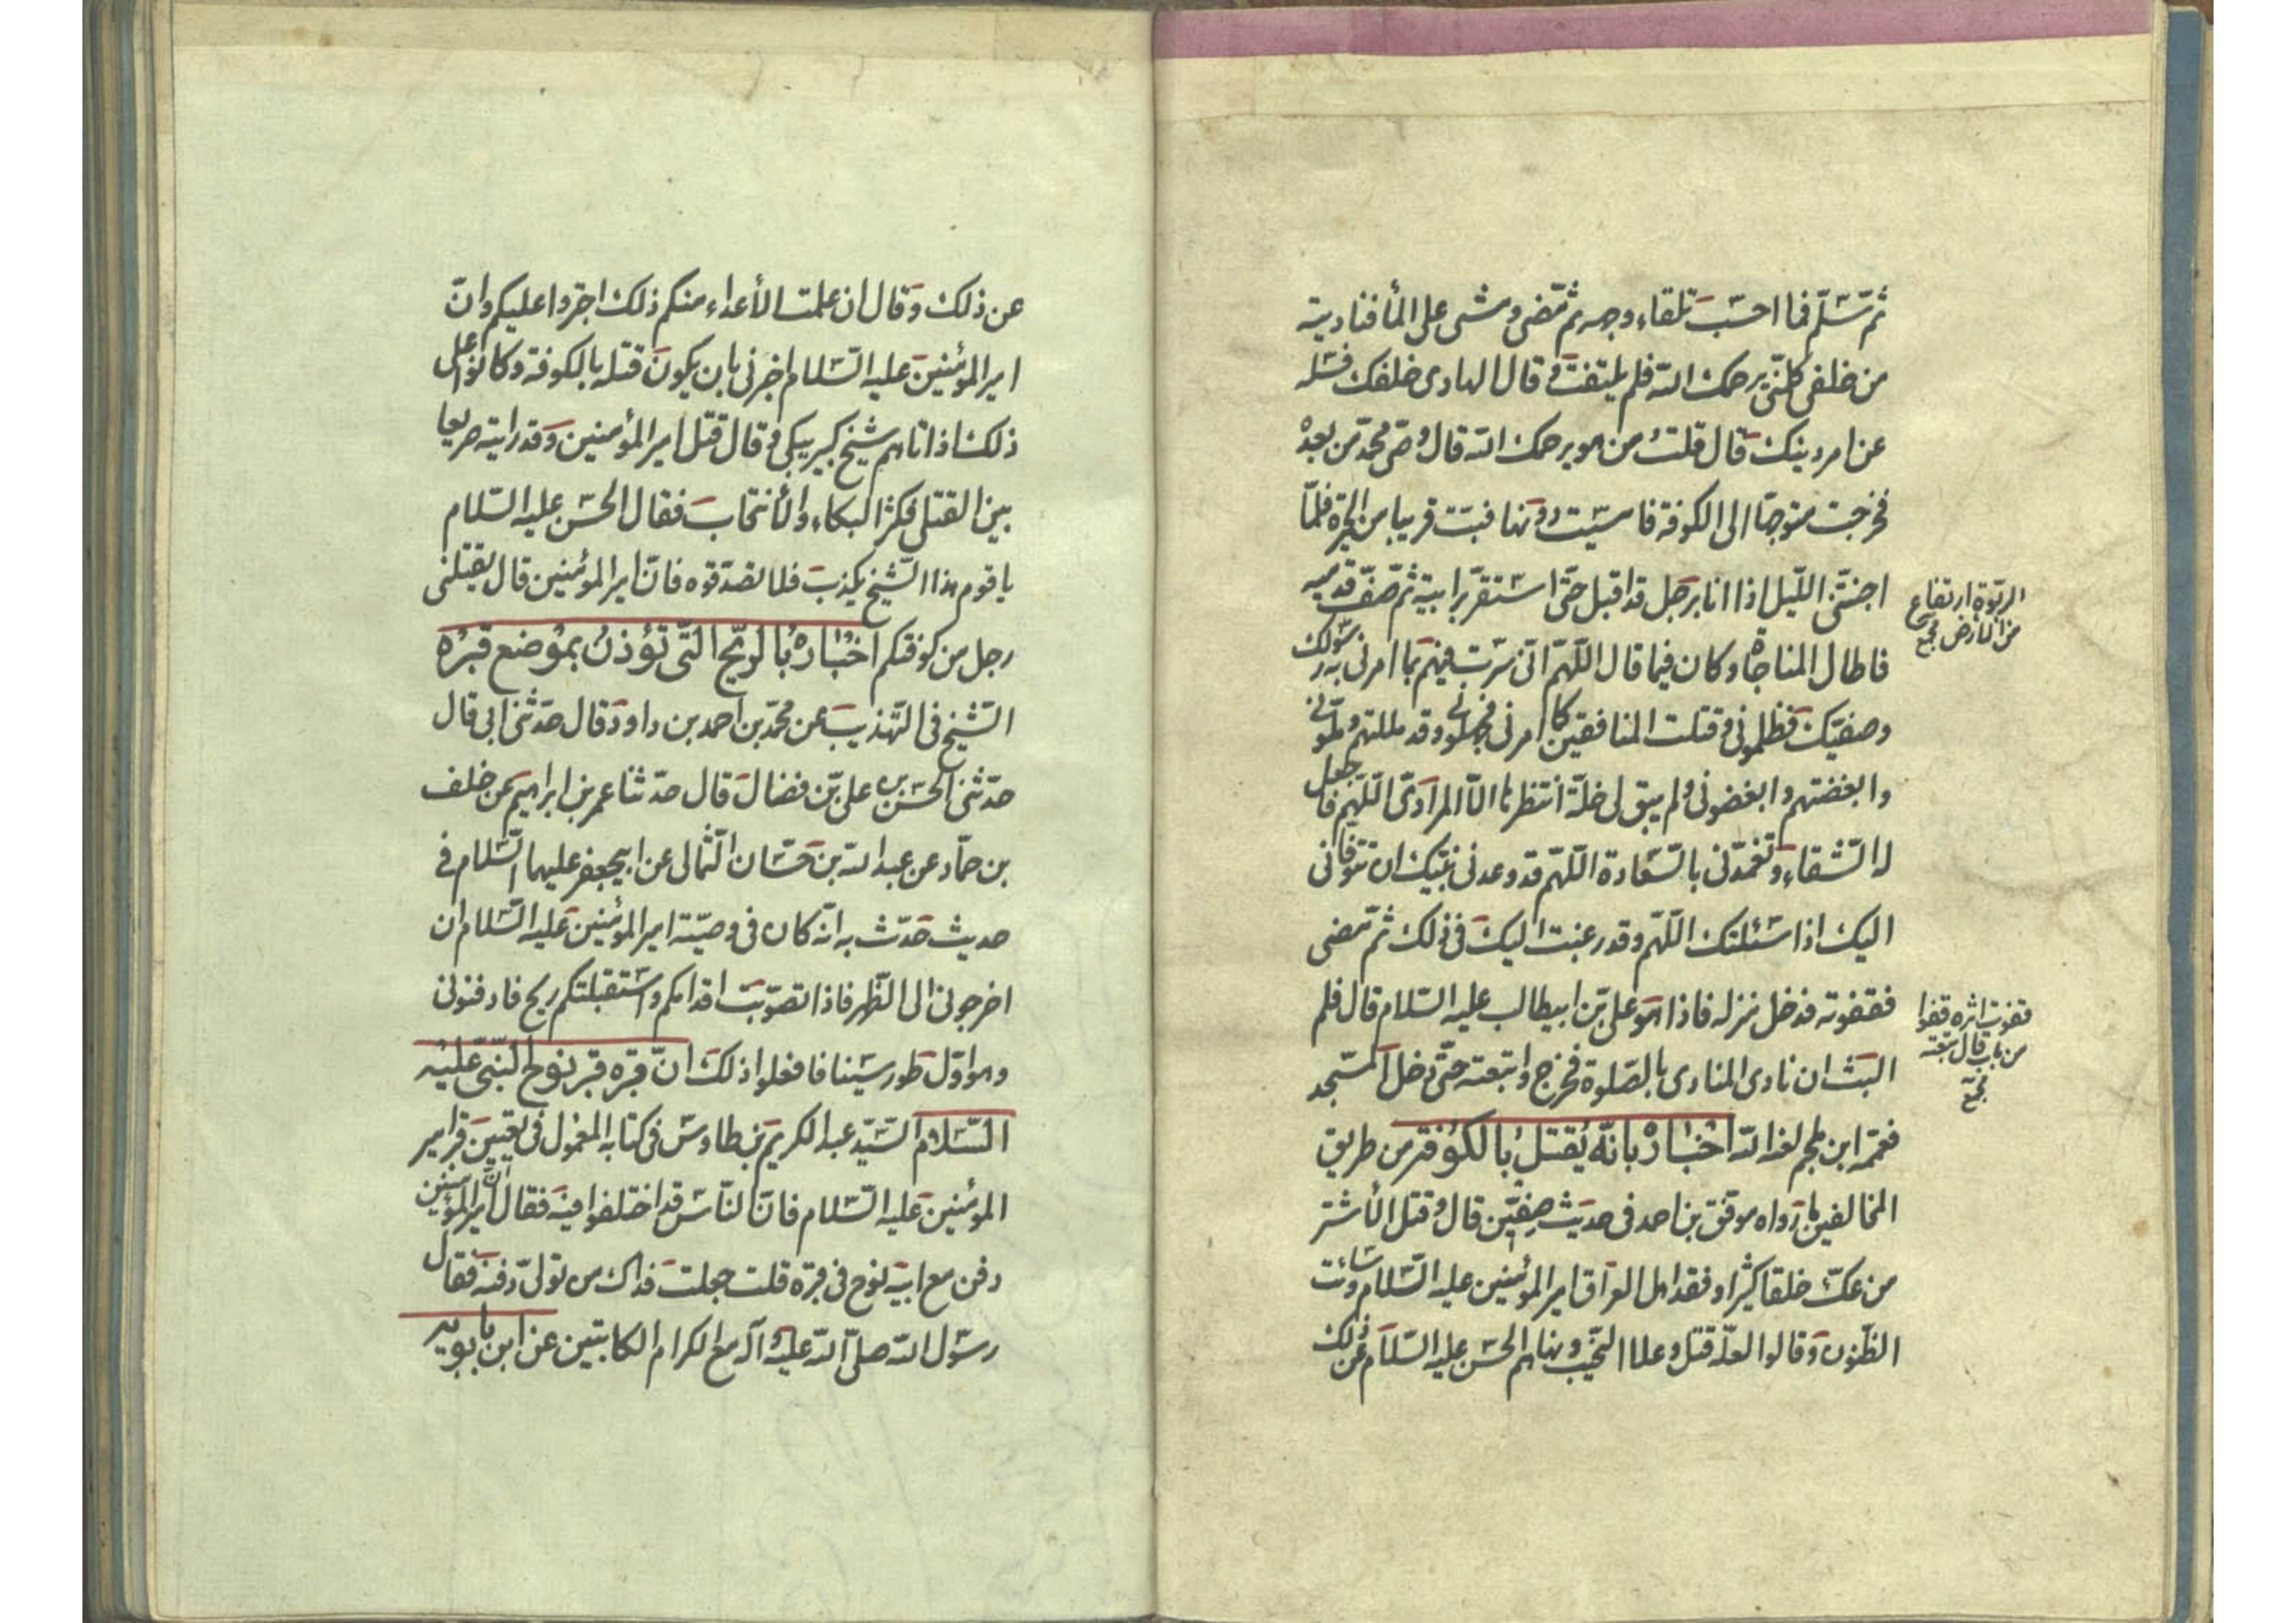 ثم تسلم فما احسب تلقاء وجهه ثم تمضى ومشى على الماء فناديته
من خلفى كلمنى يرحمك الله فلم يلتفت وقال الهادى خلفك فسله
عن امر دينك قال قلت من هو يرحمك الله قال وصى محمد من بعده
فخرجت متوجها الى الكوفة فامسيت دونها فبت قريبا من الحيرة فلما
اجننى الليل اذا انا برجل قد اقبل حتى استقر برابية ثم صف قدميه
فاطال المناجاة وكان فيما قال اللهم انى سرت فيهم بما امرنى به رسولك
وصفيك فظلمونى وقتلت المنافقين كما امرنى فجهلونى وقد مللتهم وملونى
وابغضتهم وابغضونى ولم يبق لى خلة انتظرها الا المرادى اللهم فاجعل
له الشقاء وتغمدنى بالسعادة اللهم قد وعدنى نبيك ان تتوفانى
اليك اذا سئلتك اللهم وقد رغبت اليك فى ذلك ثم تمضى
فقفوته فدخل منزله فاذا هو على بن ابيطالب عليه السلام قال فلم
البث ان نادى المنادى بالصلوة فخرج واتبعته حتى دخل المسجد
فعممه ابن ملجم لعنه الله اخباره بانه يقتل بالكوفة من طريق
المخالفين ما رواه موفق بن احمد فى حديث صفين قال وقتل الأشتر
من عك خلقا كثيرا وفقد اهل العراق امير المؤمنين عليه السلام وسائت
الظنون وقالوا لعله قتل وعلا النحيب ونهاهم الحسن عليه السلام عن ذلك
الربوة ارتفاع
من الأرض مجمع
قفوت اثره قفوا
من باب قال تبعته
مجمع
عن ذلك وقال ان علمت الأعداء منكم ذلك اجترؤا عليكم وان
امير المؤمنين عليه السلام اخبرنى بان يكون قتله بالكوفة وكانوا على
ذلك اذا اتاهم شيخ كبير يبكى وقال قتل امير المؤمنين وقد رايته صريعا
بين القتلى فكثر البكاء والأنتحاب فقال الحسن عليه السلام
يا قوم هذا الشيخ يكذب فلا تصدقوه فان امير المؤمنين قال يقتلنى
رجل من كوفتكم اخباره بالريح التى تؤذن بموضع قبره
الشيخ فى التهذيب عن محمد بن احمد بن داود قال حدثنى ابى قال
حدثنى الحسن بن على بن فضال قال حدثنا عمر بن ابراهيم عن خلف
بن حماد عن عبد الله بن حسان الثمالى عن ابيجعفر عليهما السلام فى
حديث حدث به انه كان فى وصية امير المؤمنين عليه السلام ان
اخرجونى الى الظهر فاذا تصوبت اقدامكم واستقبلتكم ريح فادفنونى
وهو اول طور سينا فافعلوا ذلك ان قبره قبر نوح النبى عليه
السلام السيد عبد الكريم بن طاوس فى كتابه المعمول فى تعيين قبر امير
المؤمنين عليه السلام فان الناس قد اختلفوا فيه فقال ان امير المؤمنين
دفن مع ابيه نوح فى قبره قلت جعلت فداك من تولى دفنه فقال
رسول الله صلى الله عليه وآله مع الكرام الكاتبين عن ابن بابويه